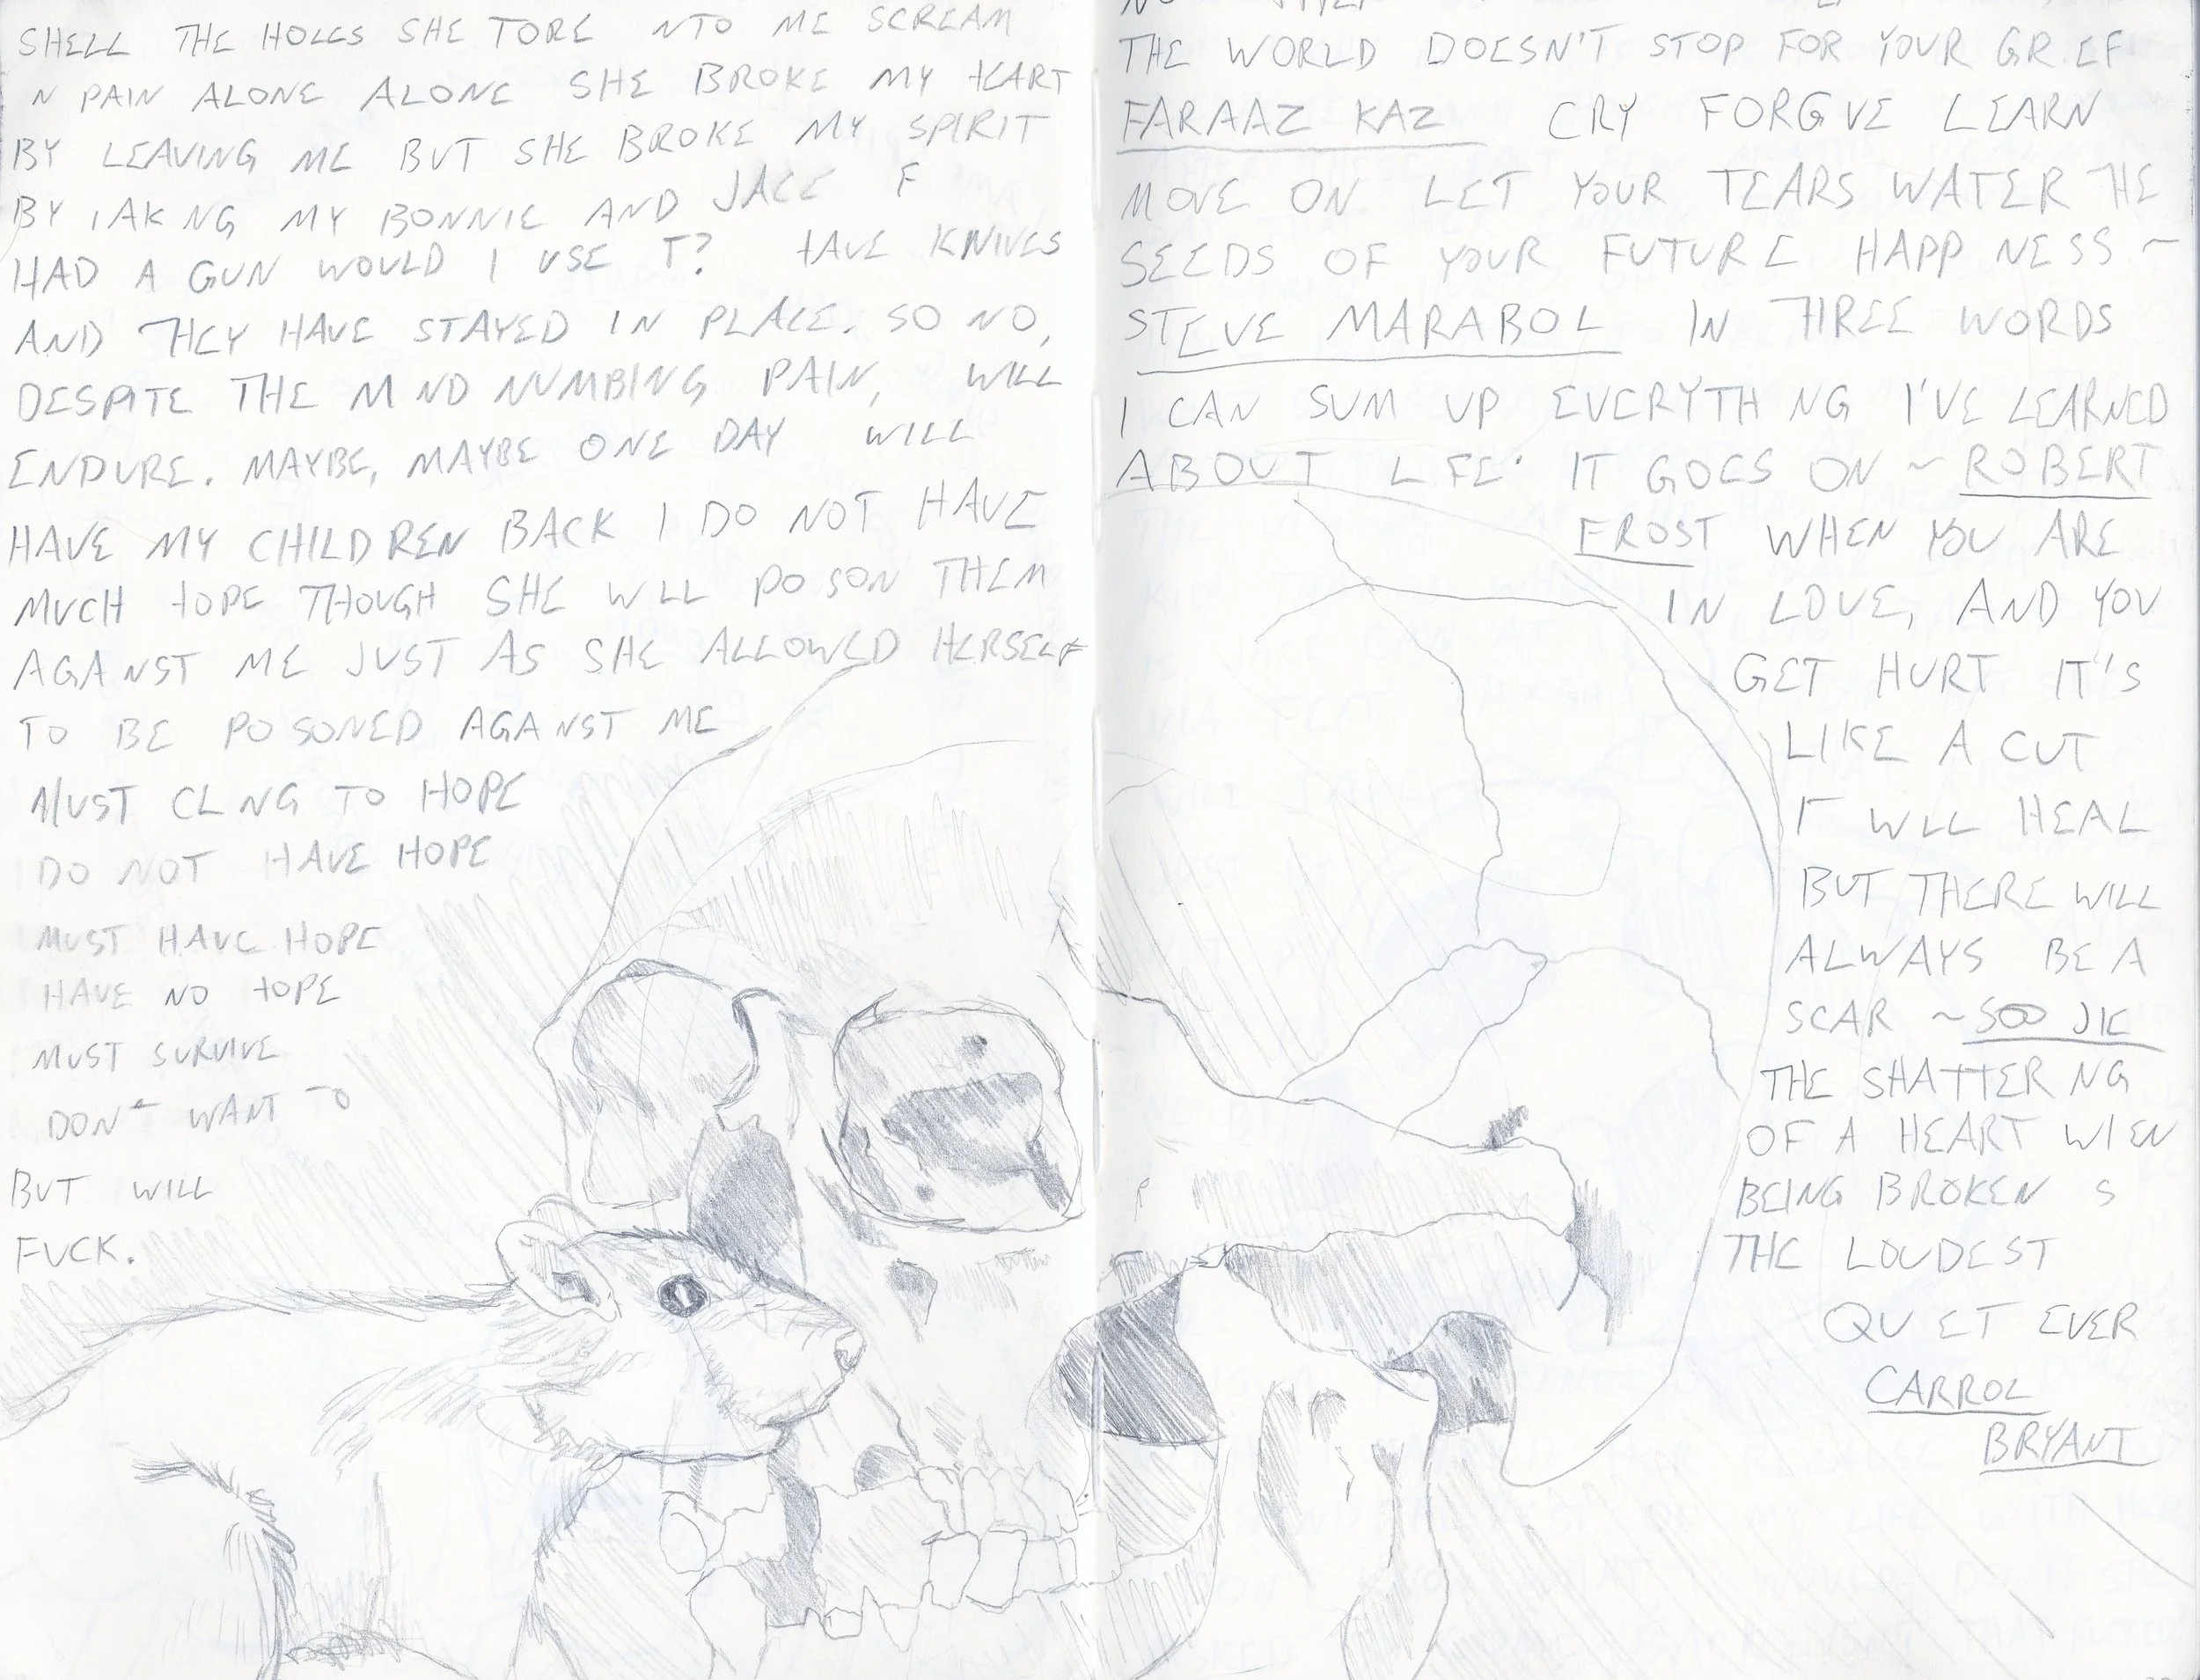 SHELL THE HOLES SHE TORE NTO ME SCREAM
N PAIN ALONE ALONE SHE BROKE MY HEART
BY LEAVING ME BUT SHE BROKE MY SPIRIT
BY TAK NG MY BONNIE AND JACE F
HAD A GUN WOULD I USE T? HAVE KNIVES
AND THEY HAVE STAYED IN PLACE. SO NO,
DESPITE THE M ND NUMBING PAIN, WILL
ENDURE. MAYBE, MAYBE ONE DAY WILL
HAVE MY CHILDREN BACK I DO NOT HAVE
MUCH HOPE THOUGH SHE WLL PO SON THEM
AGA NST ME JUST AS SHE ALLOWED HERSELF
TO BE PO SONED AGA NST ME
MUST CL NG TO HOPE
I DO NOT HAVE HOPE
MUST HAVE HOPE
HAVE NO HOPE
MUST SURVIVE
DON'T WANT TO
BUT WILL
FUCK.
THE WORLD DOESN'T STOP FOR YOUR GR EF
FARAAZ KAZ CRY FORG VE LEARN
MOVE ON LET YOUR TEARS WATER THE
SEEDS OF YOUR FUTURE HAPP NESS ~
STEVE MARABOL IN THREE WORDS
I CAN SUM UP EVERYTH NG I'VE LEARNED
ABOUT L FE: IT GOES ON ~ ROBERT
FROST WHEN YOU ARE
IN LOVE, AND YOU
GET HURT IT'S
LIKE A CUT
IT WLL HEAL
BUT THERE WILL
ALWAYS BE A
SCAR ~ SOO JIE
THE SHATTER NG
OF A HEART WHEN
BEING BROKEN S
THE LOUDEST
QU ET EVER
CARROL
BRYANT